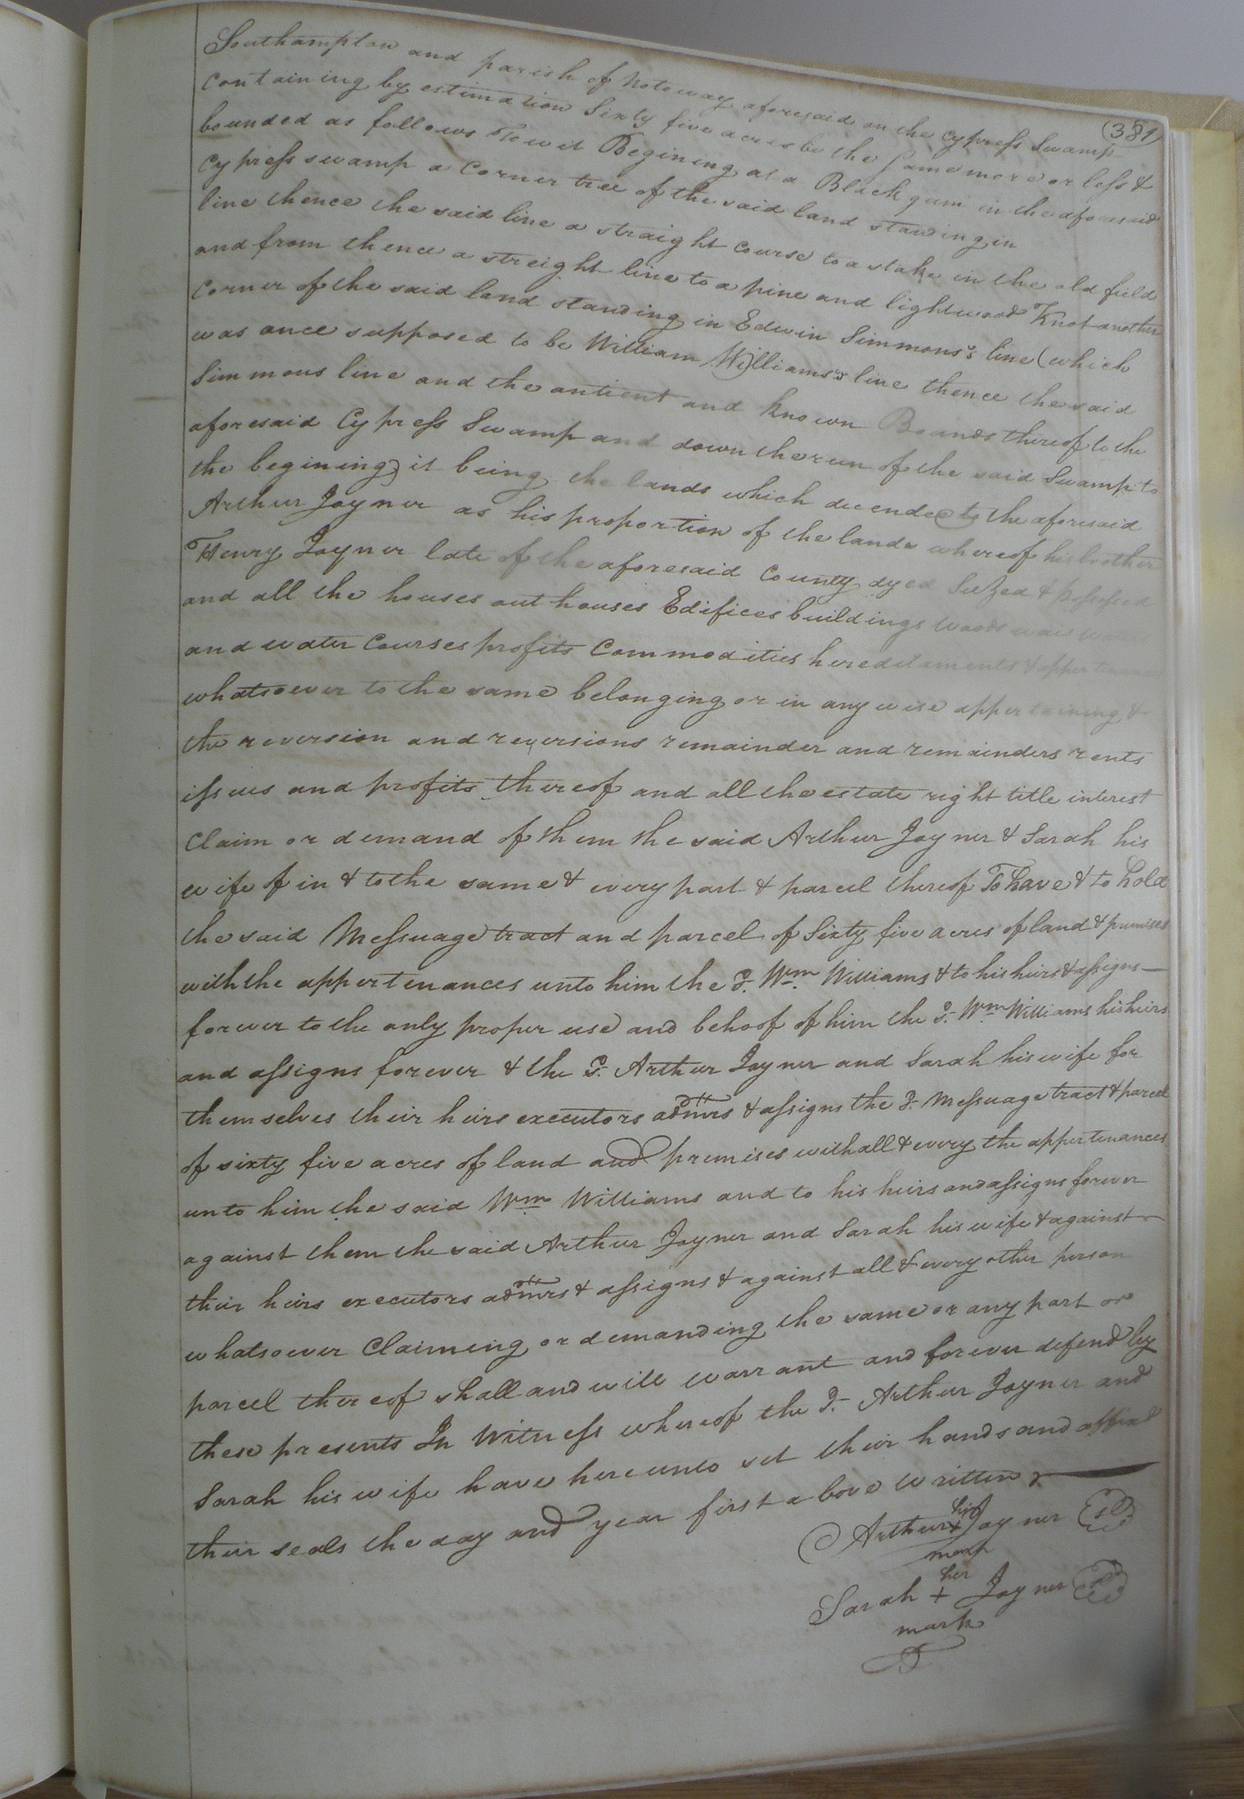 (381)
Southampton and parish of Notoway aforesaid on the Cypress Swamp
Containing by estimation Sixty five acres be the same more or less &
bounded as follows Towit Begining at a Black gum in the aforesaid
Cypress swamp a Corner tree of the said land standing in
line thence the said line a straight Course to a stake in the old field
and from thence a streight line to a pine and lightwood Knot another
Corner of the said land standing in Edwin Simmons's line (which
was once supposed to be William Williams's line thence the said
Simmons line and the antient and known Bounds thereof to the
aforesaid Cypress Swamp and down the run of the said Swamp to
the begining) it being the lands which decended to the aforesaid
Arthur Joyner as his proportion of the lands whereof his brother
Henry Joyner late of the aforesaid County dyed Seized & possessed
and all the houses out houses Edifices buildings woods
and water Courses profits Commodities hereditaments &
whatsoever to the same belonging or in any wise appertaining &
the reversion and reversions remainder and remainders rents
issues and profits thereof and all the estate right title interest
Claim or demand of them the said Arthur Joyner & Sarah his
wife of in & to the same & every part & parcel thereof To have & to hold
the said Messuage tract and parcel of Sixty five acres of land & premises
with the appertenances unto him the S. Wm. Williams & to his heirs & assigns
forever to the only proper use and behoof of him the S. Wm Williams his heirs
and assigns forever & the S. Arthur Joyner and Sarah his wife for
themselves their heirs executors admrs & assigns the S. Messuage tract & parcel
of sixty five acres of land and premises with all & every the appertenances
unto him the said Wm Williams and to his heirs and assigns forever
against them the said Arthur Joyner and Sarah his wife & against
their heirs executors admrs & assigns & against all & every other person
whatsoever Claiming or demanding the same or any part or
parcel thereof shall and will warrant and forever defend by
these presents In Witness whereof the S. Arthur Joyner and
Sarah his wife have hereunto set their hands and affixed
their seals the day and year first above written
his
Arthur + Joyner
mark
her
Sarah + Joyner
mark